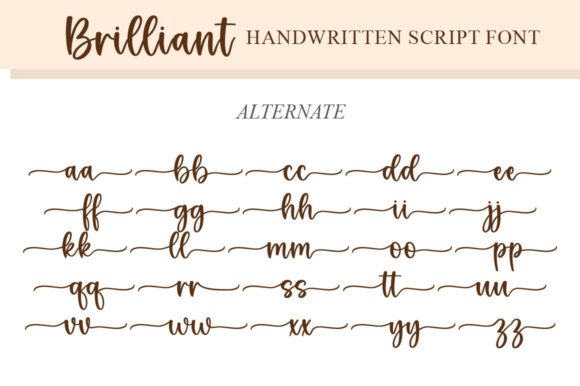 Brilliant HANDWRITTEN SCRIPT FONT
ALTERNATE
aa bb cc dd ee
ff gg hh ii jj
kk ll mm oo pp
qq rr ss tt uu
vv ww xx yy zz